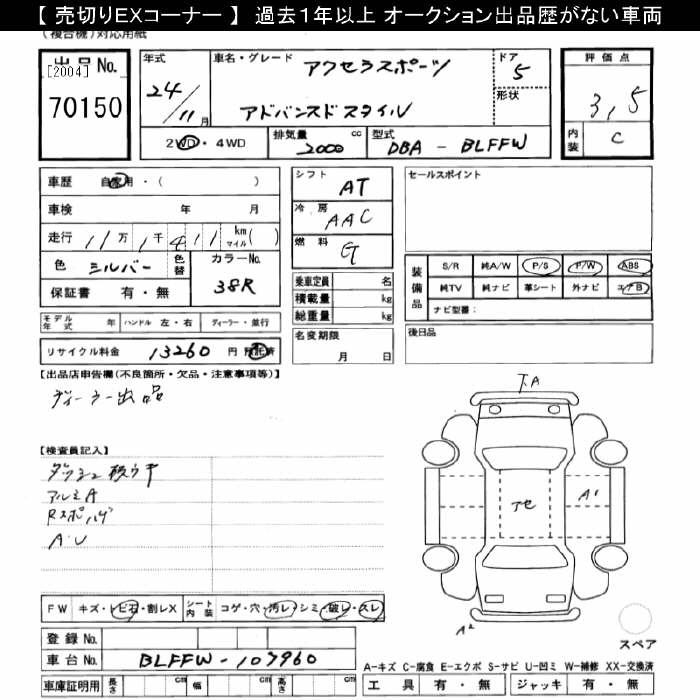 【 売切りEXコーナー 】 過去1年以上 オークション出品歴がない車両
(複合機)対応用紙
出品No.
[2004]
70150
年式
24/11月
車名・グレード
アクセラスポーツ
アドバンスドスタイル
ドア
5
形状
評価点
3.5
内装
C
2WD・4WD
排気量 2000 cc
型式 DBA - BLFFW
車歴 自家用・( )
車検 年 月
走行 11万1千411 km マイル( )
色 シルバー 色替
カラーNo.
38R
保証書 有・無
シフト AT
冷房 AAC
燃料 G
乗車定員 名
積載量 kg
総重量 kg
セールスポイント
装備品
S/R 純A/W P/S P/W ABS
純TV 純ナビ 革シート 外ナビ エアB
ナビ型番:
モデル年式 年 ハンドル 左・右 ディーラー・並行
リサイクル料金 13260 円 預託済
名変期限
月 日
後日品
【出品店申告欄(不良箇所・欠品・注意事項等)】
ディーラー出品
下A
【検査員記入】
アルミA
A・U
A1
A2
FW キズ・トビ石・割レX
シート内装 コゲ・穴・汚レ・シミ・破レ・スレ
スペア
登録No.
車台No. BLFFW-107960
A-キズ C-腐食 E-エクボ S-サビ U-凹ミ W-補修 XX-交換済
車庫証明用 長さ cm 幅 cm 高さ cm
工具 有・無 ジャッキ 有・無